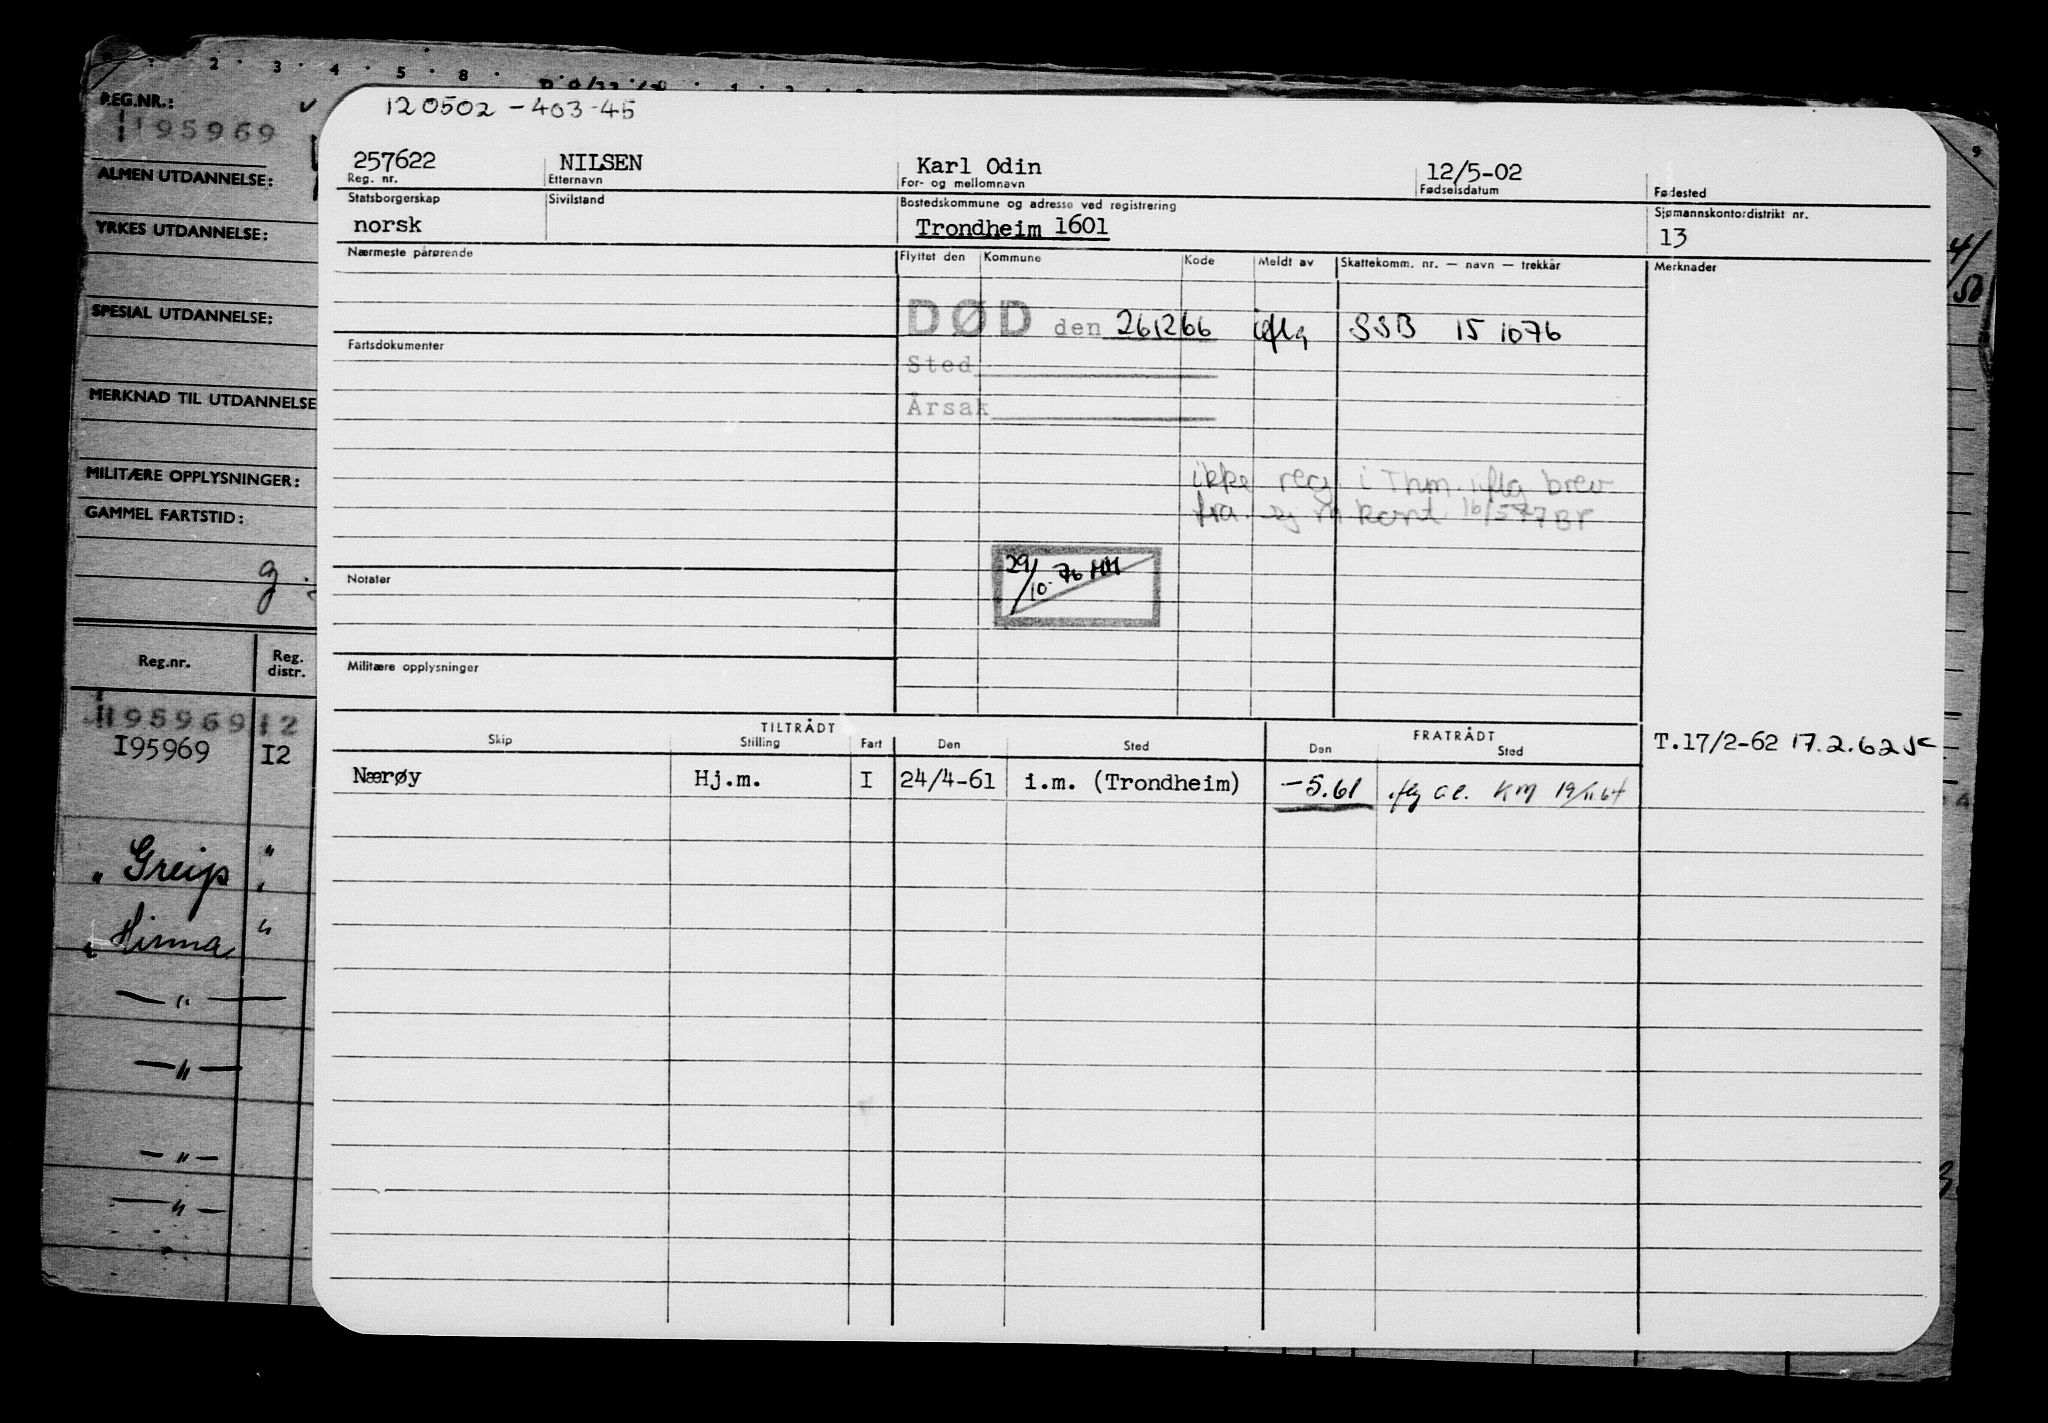 2 · 3 · 4 · 5 · 8 ·
REG.NR.:
195969
ALMEN UTDANNELSE:
YRKES UTDANNELSE:
SPESIAL UTDANNELSE:
MERKNAD TIL UTDANNELSE
MILITÆRE OPPLYSNINGER:
GAMMEL FARTSTID:
g.
Reg.nr. Reg. distr.
195969 12
I95969 I2
„ Greip "
„ Hinna "
— " —
— " —
— " —
— " —
120502-403-45
257622 NILSEN Karl Odin 12/5-02
Reg. nr. Etternavn For- og mellomnavn Fødselsdatum Fødested
Statsborgerskap Sivilstand Bostedskommune og adresse ved registrering Sjømannskontordistrikt nr.
norsk Trondheim 1601 13
Nærmeste pårørende Flyttet den Kommune Kode Meldt av Skattekomm. nr. — navn — trekkår Merknader
DØD den 261266 iflg SSB 15 1076
Fartsdokumenter
Sted
Årsak
ikke reg. i Thm. iflg brev
fra. sj m kont. 16/577 BP
29/10-76 HH
Notater
Militære opplysninger
TILTRÅDT FRATRÅDT
Skip Stilling Fart Den Sted Den Sted
T.17/2-62 17.2.62
Nærøy Hj.m. I 24/4-61 i.m. (Trondheim) -5.61 iflg KM